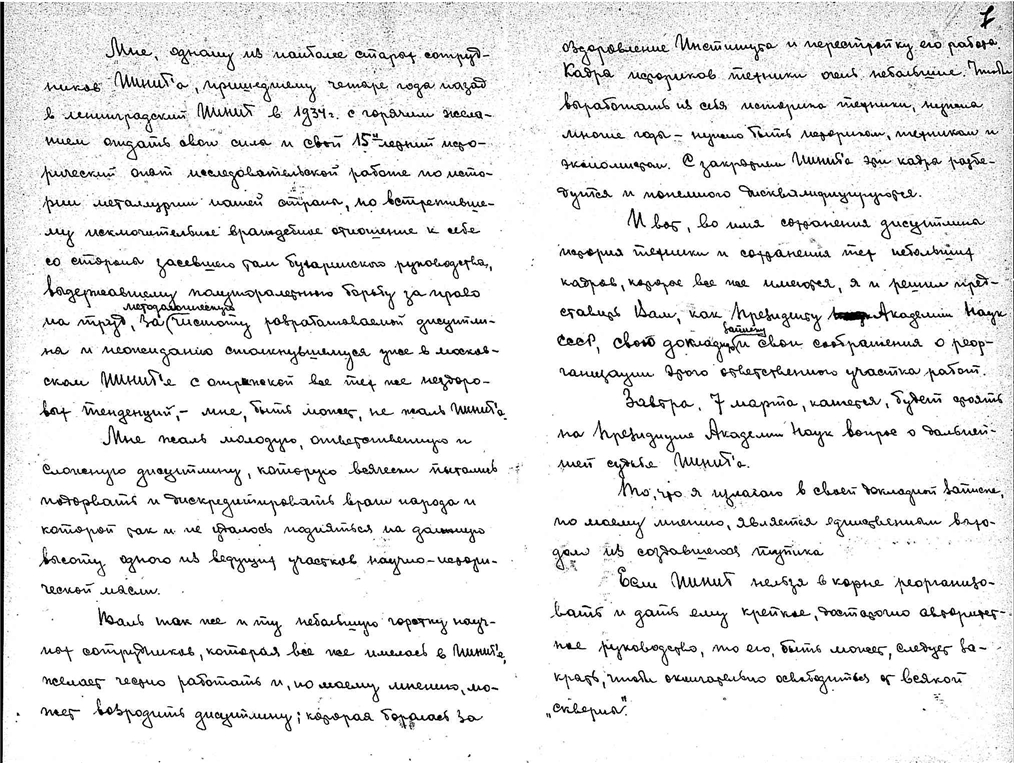 Мне, одному из наиболее старых сотруд-
ников ИИНИТ'а, пришедшему четыре года назад
в ленинградский ИИНИТ в 1934 г. с горячим жела-
нием отдать свои силы и свой 15ти летний исто-
рический опыт исследовательской работе по исто-
рии металлургии нашей страны, но встретивше-
му исключительное враждебное отношение к себе
со стороны засевшего там бухаринского руководства,
выдержавшему полуторалетнюю борьбу за право
на труд, за методологическую чистоту разрабатываемой дисципли-
ны и неожиданно столкнувшемуся уже в москов-
ском ИИНИТ'е с отрыжкой все тех же нездоро-
вых тенденций, – мне, быть может, не жаль ИИНИТ'а.
Мне жаль молодую, ответственную и
сложную дисциплину, которую всячески пытались
подорвать и дискредитировать враги народа и
которой так и не удалось подняться на должную
высоту одного из ведущих участков научно-истори-
ческой мысли.
Жаль так же и ту небольшую горстку науч-
ных сотрудников, которая все же имелась в ИИНИТ'е,
желает честно работать и, по моему мнению, мо-
жет возродить дисциплину; которая боролась за
7
оздоровление Института и перестройку его работы.
Кадры историков техники очень небольшие. Чтобы
выработать из себя историка техники, нужны
многие годы – нужно быть историком, техником и
экономистом. С закрытием ИИНИТ'а эти кадры разбе-
дутся и понемногу дисквалифицируются.
И вот, во имя сохранения дисциплины
истории техники и сохранения тех небольших
кадров, которые все же имеются, я и решил пред-
ставить Вам, как Президенту Академии Наук
СССР, свою докладную записку и свои соображения о реор-
ганизации этого ответственного участка работ.
Завтра, 7 марта, кажется, будет стоять
на Президиуме Академии Наук вопрос о дальней-
шей судьбе ИИНИТ'а.
То, что я излагаю в своей докладной записке,
по моему мнению, является единственным выхо-
дом из создавшегося тупика.
Если ИИНИТ нельзя в корне реорганизо-
вать и дать ему крепкое, достаточно авторитет-
ное руководство, то его, быть может, следует за-
крыть, чтобы окончательно освободиться от всякой
„скверны".